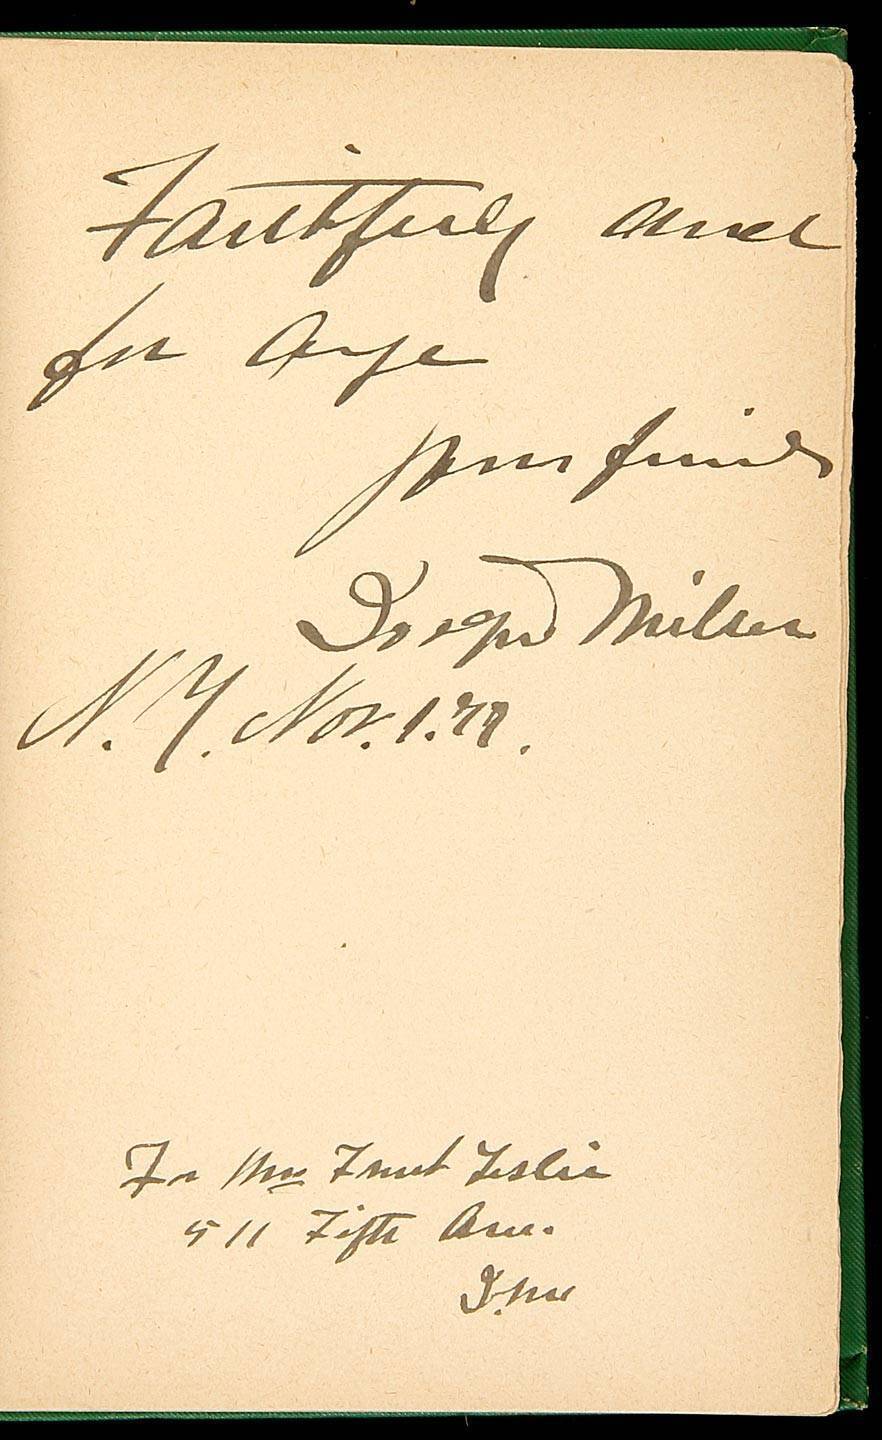 Faithfully and
for aye
your friend
Joaquin Miller
N. Y. Nov. 1. 79.
For Mrs Frank Leslie
511 Fifth Ave.
J. M